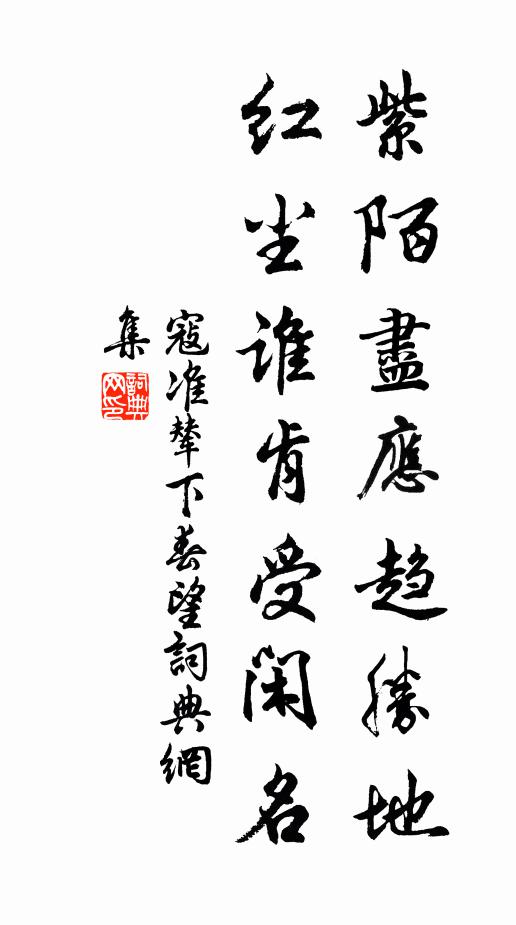 紫陌盡應趨勝地
红尘誰肯受閑名
寇准輦下春望詞典網
集
詞典
网印